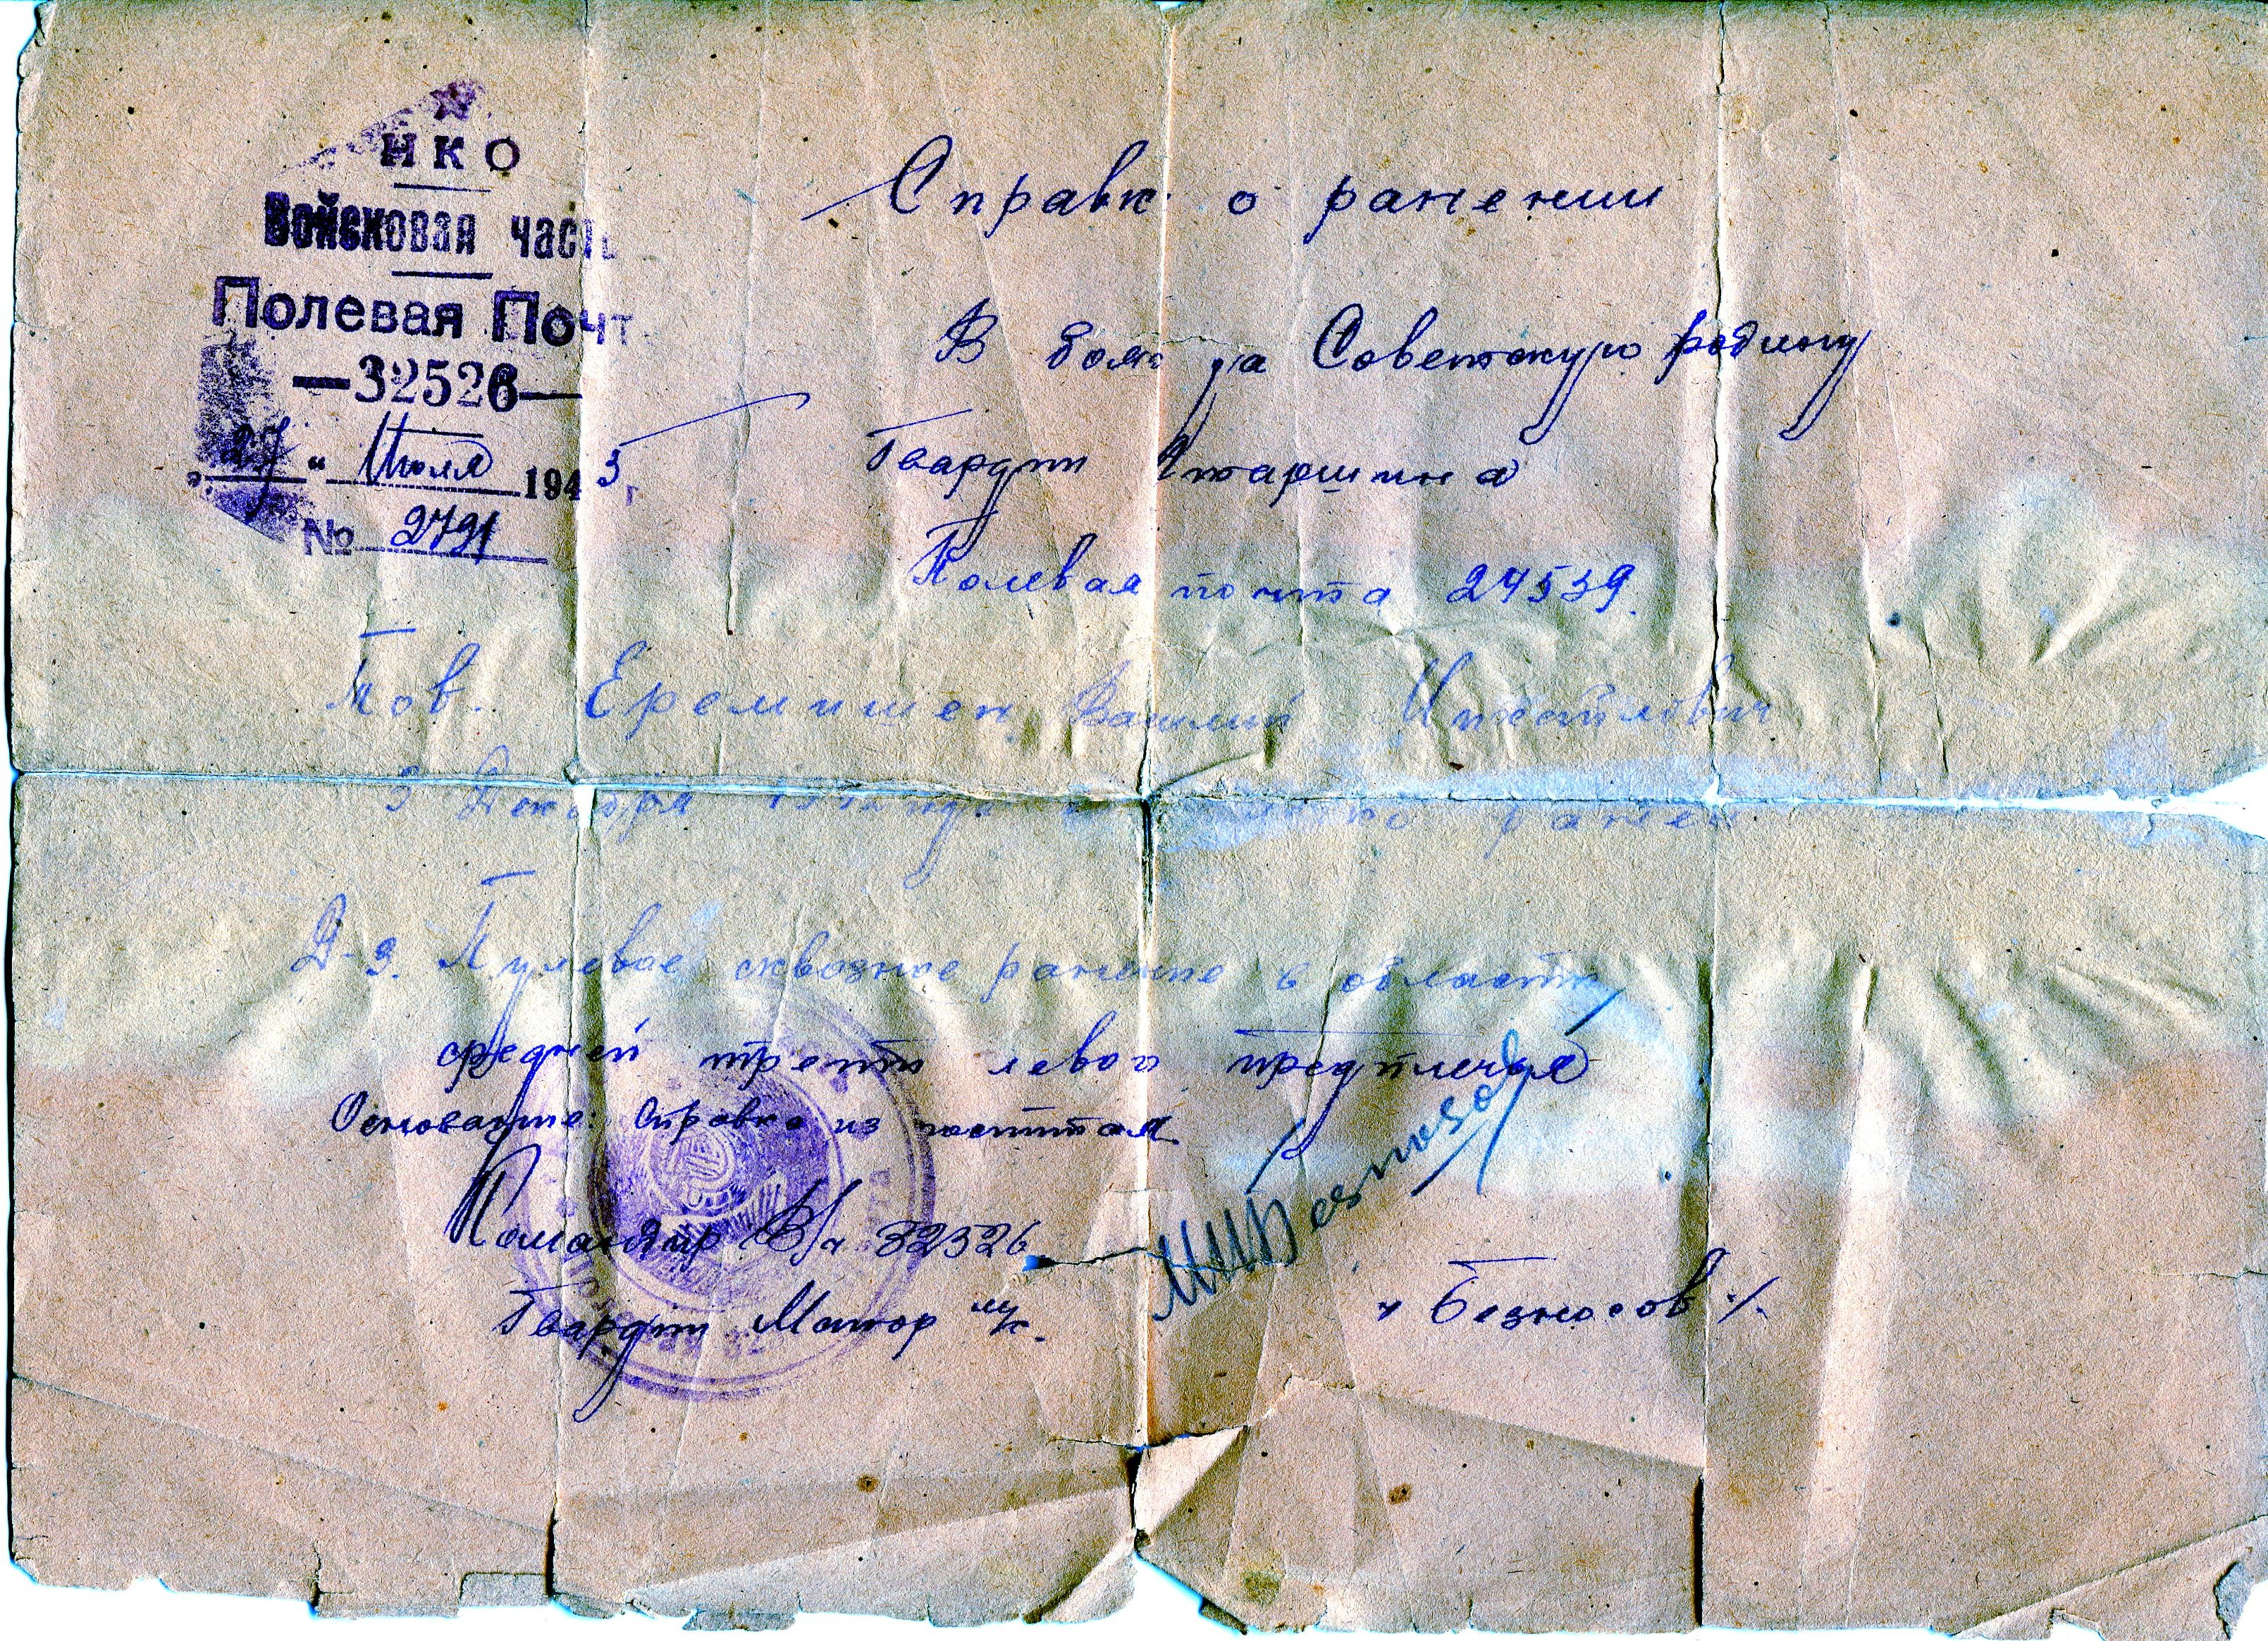 НКО
Войсковая часть
Полевая Почт
—32526—
„27“ Июля 1945 г
№ 2791
Справк о ранении
В боях за Советскую родину
Гвардии Старшина
Полевая почта 27539.
Тов. Еремишен Василий Михайлович
3 Декабря ранен
Д-з. Пулевое сквозное ранение в области
средней трети левого предплечья
Основание: Справка из госпиталя
Командир В/ч 32526
Гвардии Маиор м/с.
Безносов